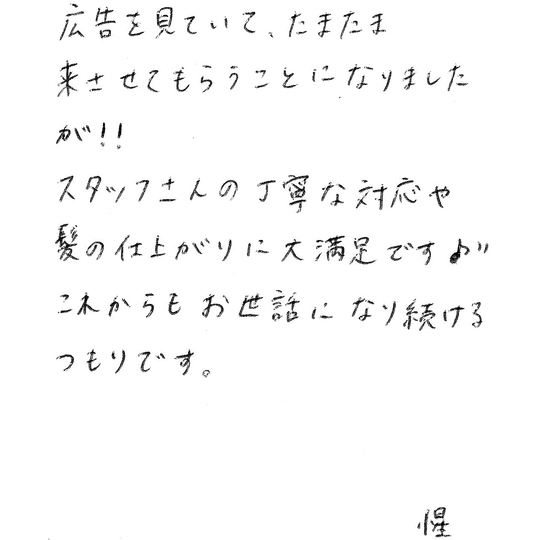 広告を見ていて、たまたま
来させてもらうことになりました
が!!
スタッフさんの丁寧な対応や
髪の仕上がりに大満足です♪"
これからもお世話になり続ける
つもりです。
惺